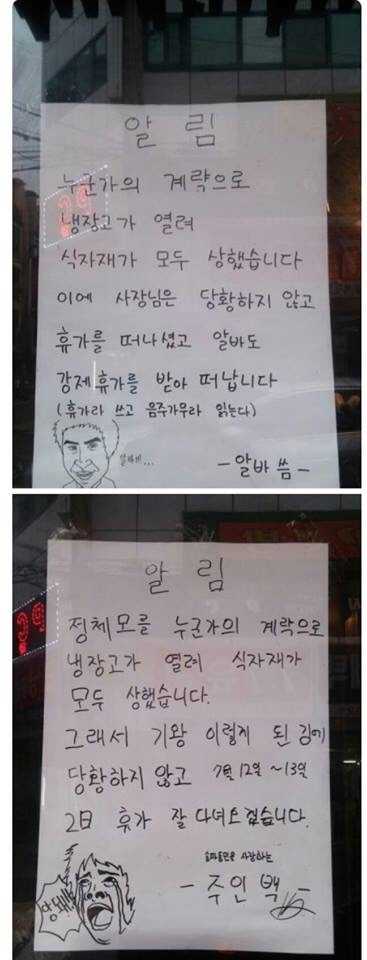 알 림
누군가의 계략으로
냉장고가 열려
식자재가 모두 상했습니다
이에 사장님은 당황하지 않고
휴가를 떠나셨고 알바도
강제휴가를 받아 떠납니다
(휴가라 쓰고 음주가무라 읽는다)
-알바 씀-
알 림
정체모를 누군가의 계략으로
냉장고가 열려 식자재가
모두 상했습니다.
그래서 기왕 이렇게 된 김에
당황하지 않고 7월 12일 ~13일
2日 휴가 잘 다녀오겠습니다.
사랑하는
- 주인 백 -
안돼!!!